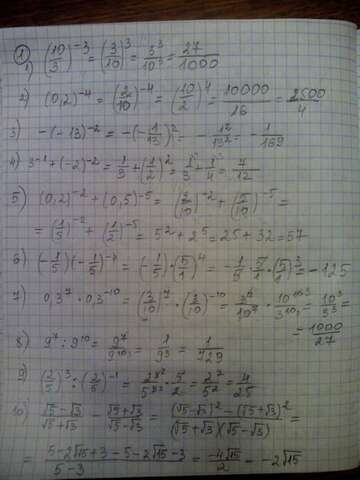 ① 1) (10/3)^-3 = (3/10)^3 = 3^3/10^3 = 27/1000
2) (0,2)^-4 = (2/10)^-4 = (10/2)^4 = 10000/16 = 2500/4
3) -(-13)^-2 = -(-1/13)^2 = -1^2/13^2 = -1/169
4) 3^-1 + (-2)^-2 = 1/3 + (1/2)^2 = 1/3 + 1/4 = 7/12
5) (0,2)^-2 + (0,5)^-5 = (2/10)^-2 + (5/10)^-5 =
= (1/5)^-2 + (1/2)^-5 = 5^2 + 2^5 = 25 + 32 = 57
6) (-1/5)(-1/5)^-4 = (-1/5)·(5/1)^4 = -1/5 · 5/1 · (5/1)^3 = -125
7) 0,3^7 · 0,3^-10 = (3/10)^7 · (3/10)^-10 = 3^7/10^7 · 10^10/3^10 = 10^3/3^3 =
= 1000/27
8) 9^7 : 9^10 = 9^7/9^10 = 1/9^3 = 1/729
9) (2/5)^3 : (2/5)^-1 = 2^3/5^3 · 5/2 = 2^2/5^2 = 4/25
10) √5-√3/√5+√3 - √5+√3/√5-√3 = (√5-√3)^2 - (√5+√3)^2/(√5+√3)(√5-√3) =
= 5-2√15+3-5-2√15-3/5-3 = -4√15/2 = -2√15